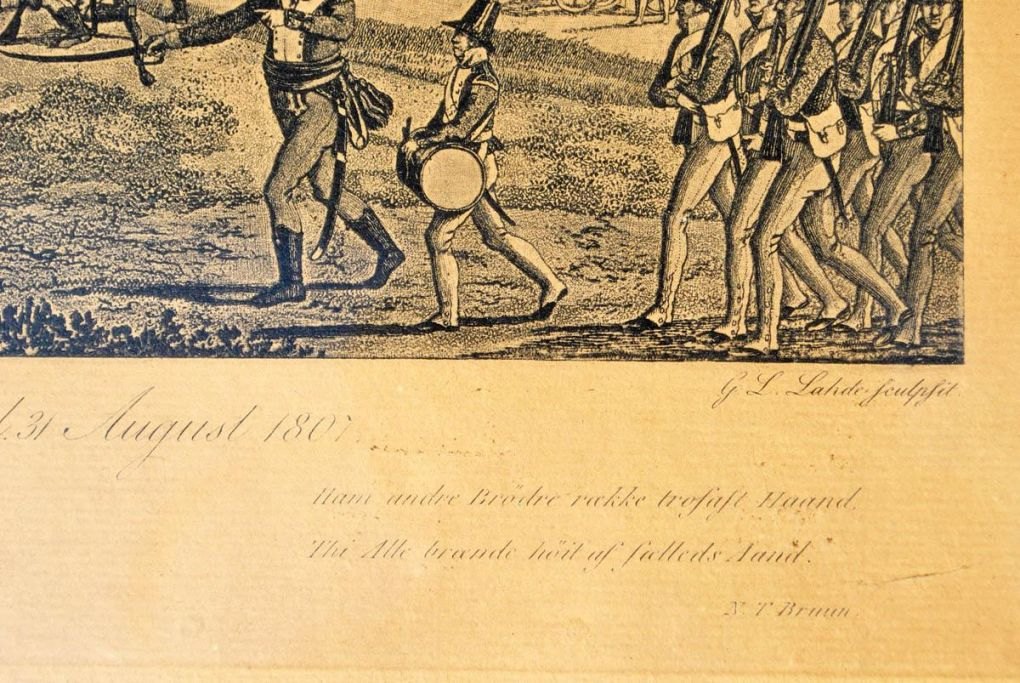 G. L. Lahde sculpsit.
d. 31 August 1807.
Ham andre Brödre række trofast Haand.
Thi Alle brænde höit af fælleds Aand.
N. T. Bruun